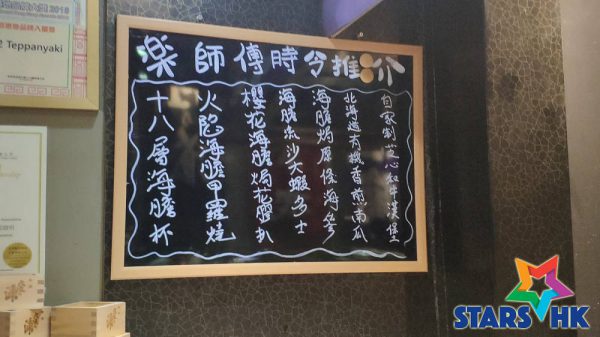 楽師傅時令推介
自家制芝心和牛漢堡
北海道有機香煎南瓜
海膽焗原條海參
海膽流沙大蝦多士
櫻花海膽焗花膠扒
火焰海膽甲羅燒
十八層海膽杯
Teppanyaki
STARS HK